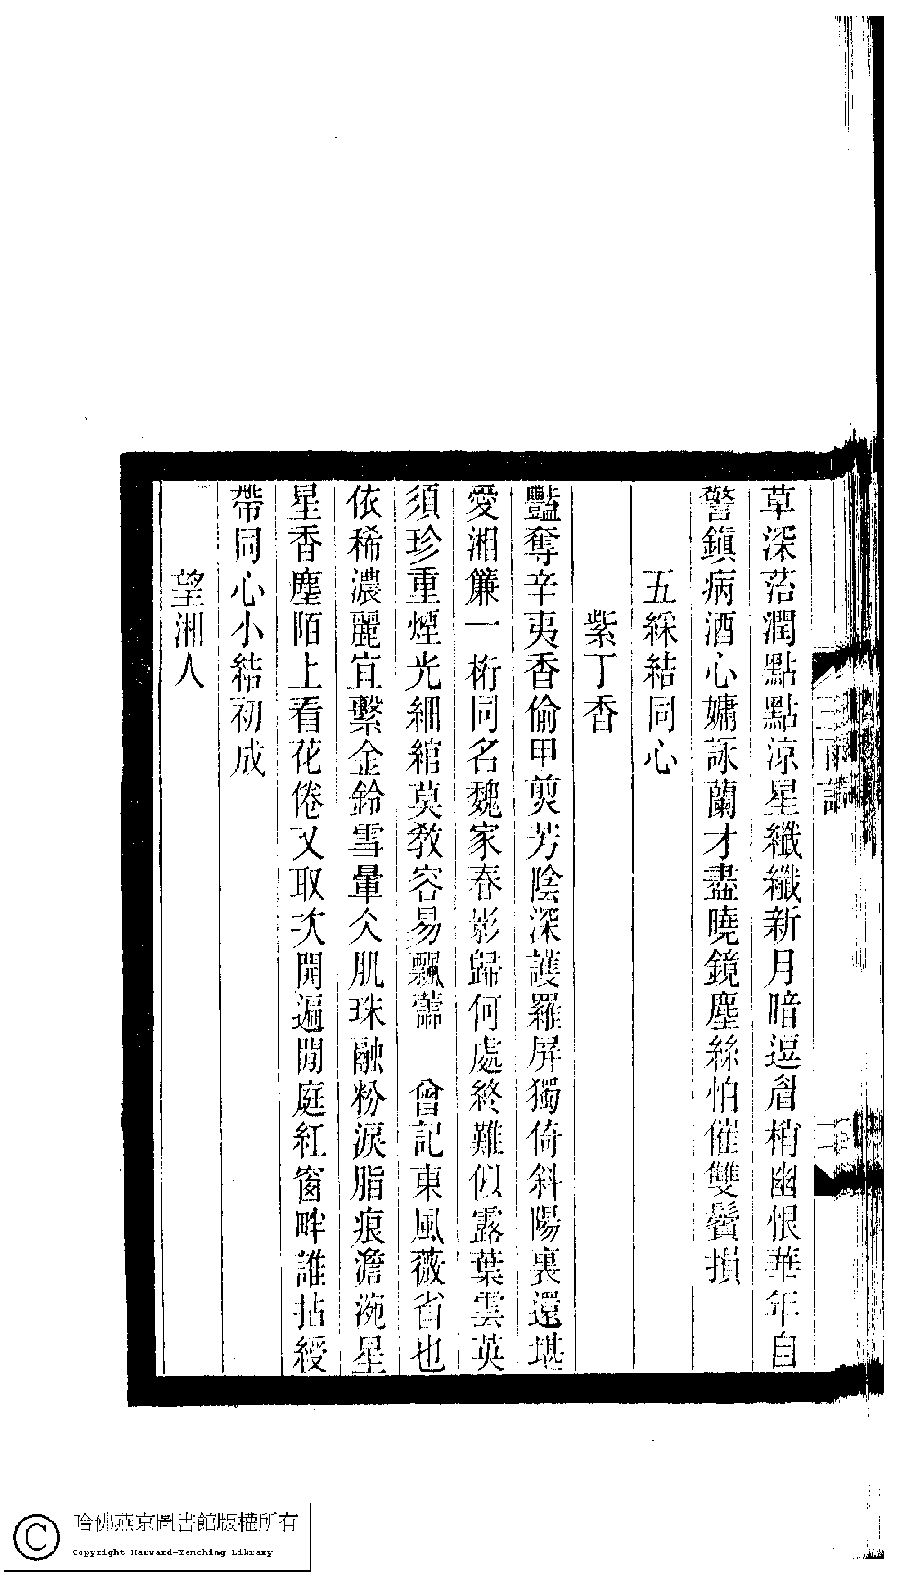 草深萿潤點點涼星纖纖新月暗逗眉梢幽恨華年自
警鎮病酒心嫞詠蘭才盡曉鏡塵絲怕催雙鬢損
五綵結同心
紫丁香
豔奪辛夷香偷甲煎芳陰深護羅屏獨倚斜陽裏還堪
愛湘簾一桁同名魏家春影歸何處終難似露葉雲英
須珍重煙光細綰莫教容易飄蘦　曾記東風薇省也
依稀濃麗宜繫金鈴雪暈仌肌珠融粉淚脂痕澹涴星
星香塵陌上看花倦又取次開遍閒庭紅窗畔誰拈綬
帶同心小結初成
望湘人
哈佛燕京圖書館版權所有
Copyright Harvard-Yenching Library